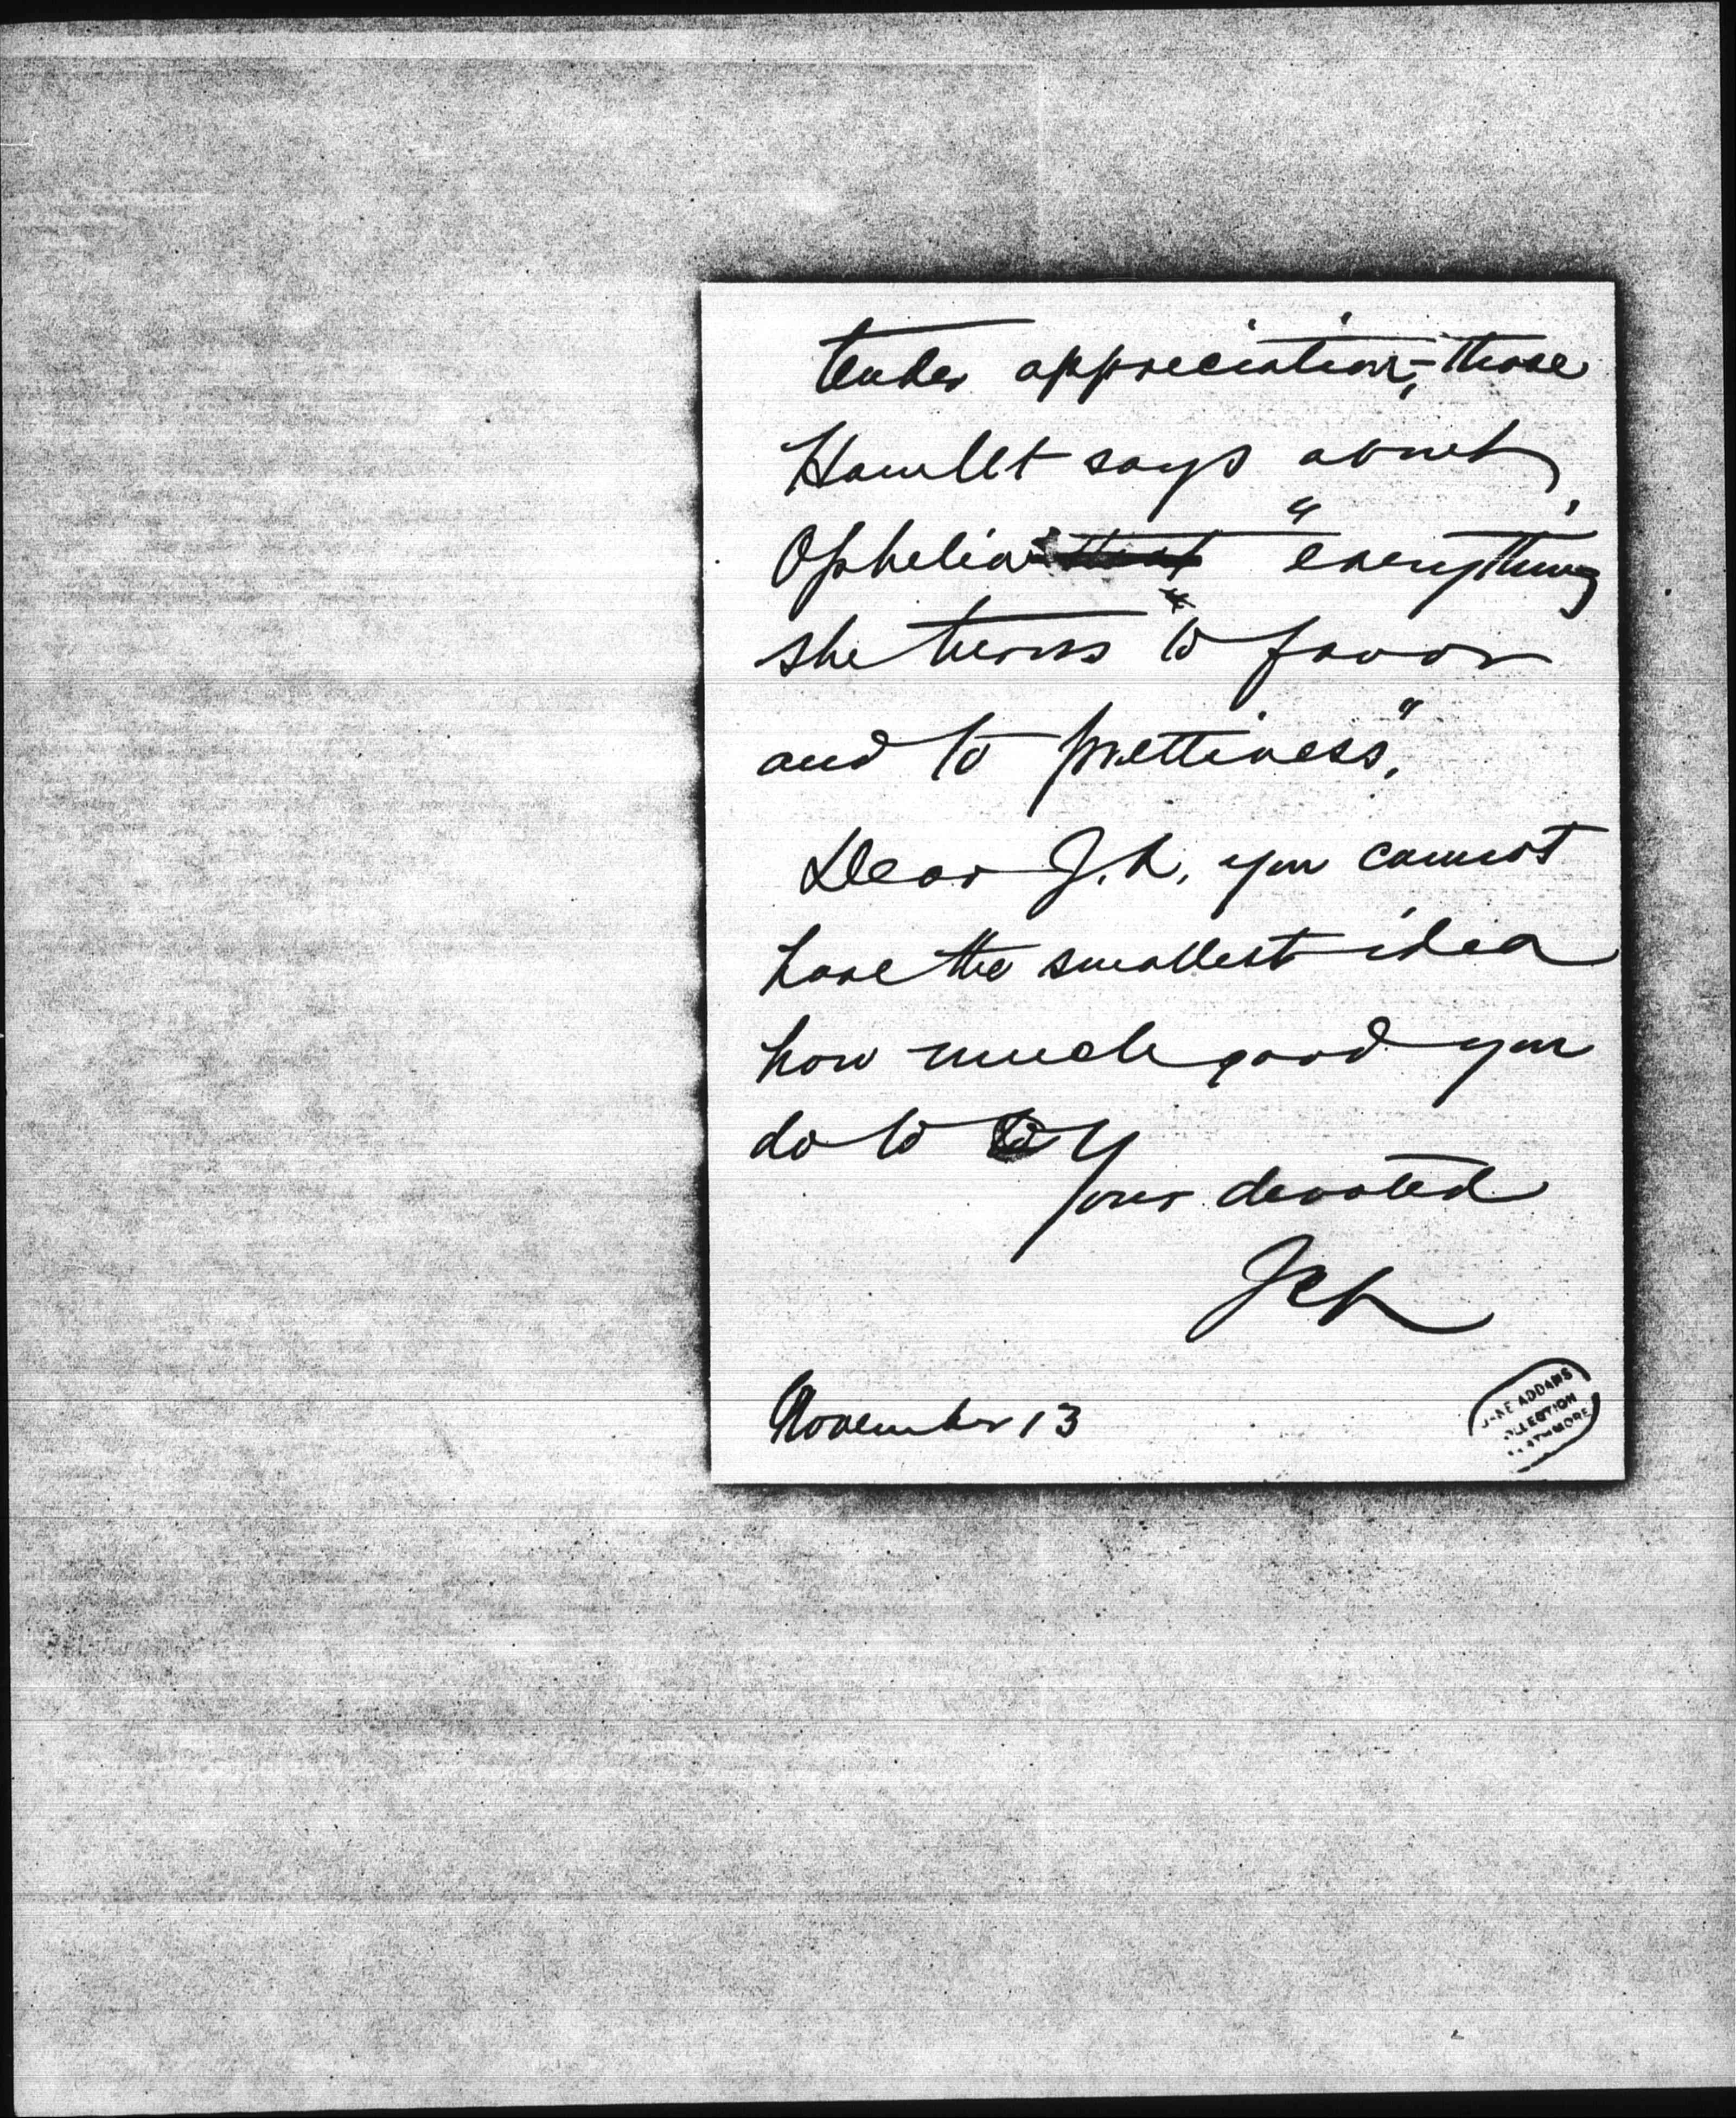 tender appreciation; - those
Hamlet says about
Ophelia that "everything
she turns to favor
and to prettiness."
Dear J.A. you cannot
have the smallest idea
how much good you
do to
Your devoted
November 13
JANE ADDAMS
COLLECTION
SWARTHMORE